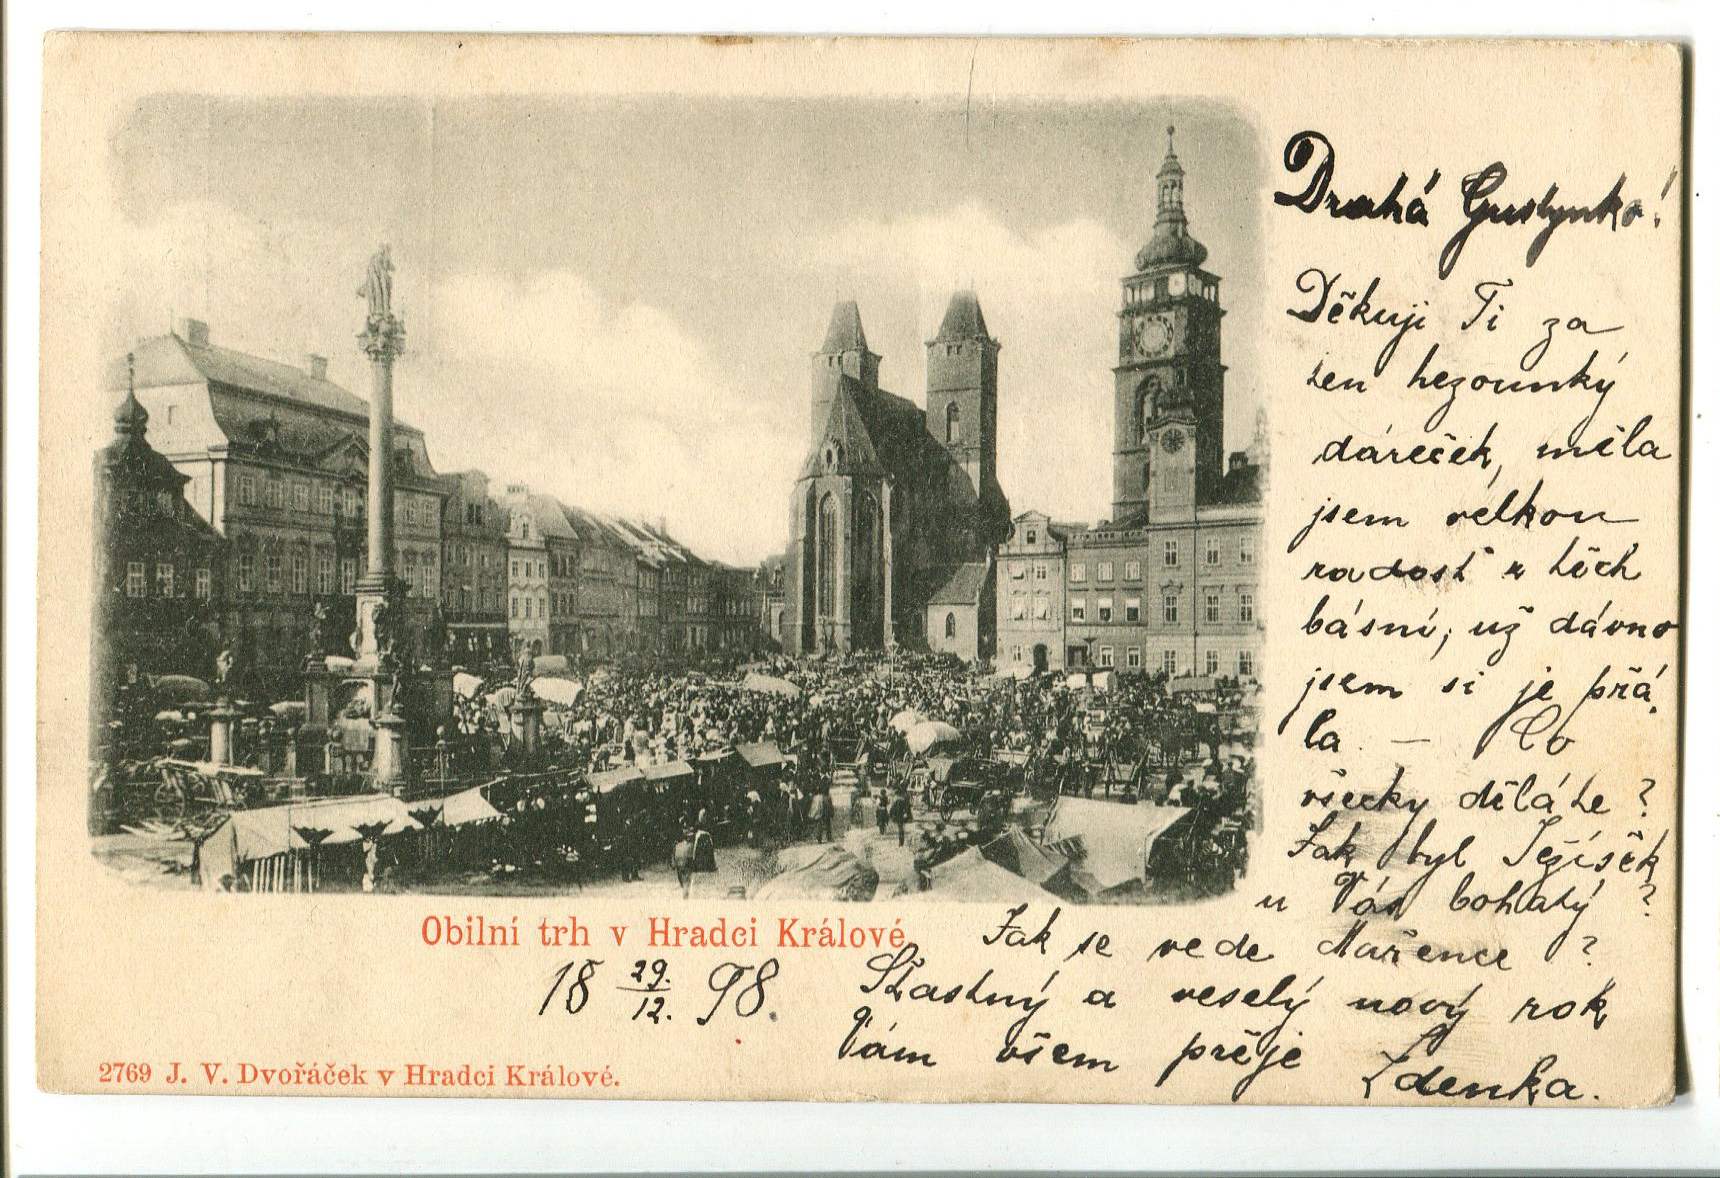 Drahá Gustynko!
Děkuji Ti za
ten hezounký
dáreček, měla
jsem velkou
radost z těch
básní, už dávno
jsem si je přá-
la. – Co
všecky děláte?
Jak byl Ježíšek
u Vás bohatý?
Jak se vede Mařence?
Šťastný a veselý nový rok
Vám všem přeje
Zdenka.
Obilní trh v Hradci Králové.
18 29./12. 98.
2769 J. V. Dvořáček v Hradci Králové.